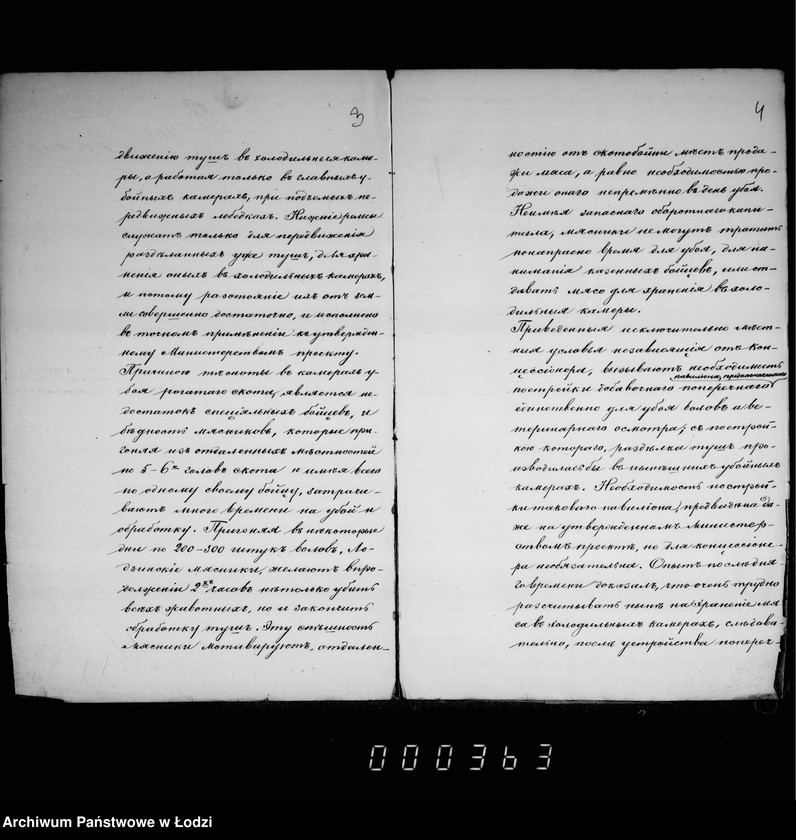 3
движенію тушъ въ холодильныя каме-
ры, а работая только въ главныхъ у-
бойныхъ камерахъ, при подъемныхъ пе-
редвижныхъ лебедкахъ. Нижніе рельсы
служатъ только для передвиженія
раздѣланныхъ уже тушъ, для хра-
ненія оныхъ въ холодильныхъ камерахъ,
и потому разстояніе ихъ отъ зем-
ли совершенно достаточно, и исполнено
въ точномъ примѣненіи къ утвержден-
ному Министерствомъ проекту.
Причиною тѣсноты въ камерахъ у-
боя рогатаго скота, является не-
достатокъ спеціальныхъ бойцевъ, и
бѣдность мясниковъ, которые при
гоняя изъ отдаленныхъ мѣстностей
по 5-6ть головъ скота и имѣя всего
по одному своему бойцу, затрачи-
ваютъ много времени на убой и
обработку. Пригоняя въ нѣкоторые
дни по 200-300 штукъ воловъ, Ло-
дзинскіе мясники, желаютъ впро-
долженіи 2хъ часовъ не только убить
всѣхъ животныхъ, но и закончить
обработку тушъ. Эту спѣшность
мясники мотивируютъ, отдален-
4
ностію отъ скотобойни мѣстъ прода-
жи мяса, а равно необходимостью про-
дажи онаго непремѣнно въ день убоя.
Неимѣя запаснаго оборотнаго капи-
тала, мясники не могутъ тратить
понапрасно время для убоя, для на-
ниманія казенныхъ бойцевъ, или от-
давать мясо для храненія въ холо-
дильныя камеры.
Приведенныя исключительно мѣст-
ныя условія независящія отъ кон-
цессіонера, вызываютъ необходимость
павильона, предназначеннаго
постройки добавочнаго поперечнаго
единственно для убоя воловъ и ве-
теринарнаго осмотра; съ построй-
кою котораго, раздѣлка тушъ про-
изводилась бы въ нынѣшнихъ убойныхъ
камерахъ. Необходимость построй-
ки таковаго павиліона, предвидѣна да-
же на утвержденномъ Министер-
ствомъ проектѣ, но для концессіоне-
ра необязательна. Опытъ послѣдня
го времени доказалъ, что очень трудно
разсчитывать нынѣ на храненіе мя
са въ холодильныхъ камерахъ, слѣдова-
тельно, послѣ устройства попереч-
000363
Archiwum Państwowe w Łodzi